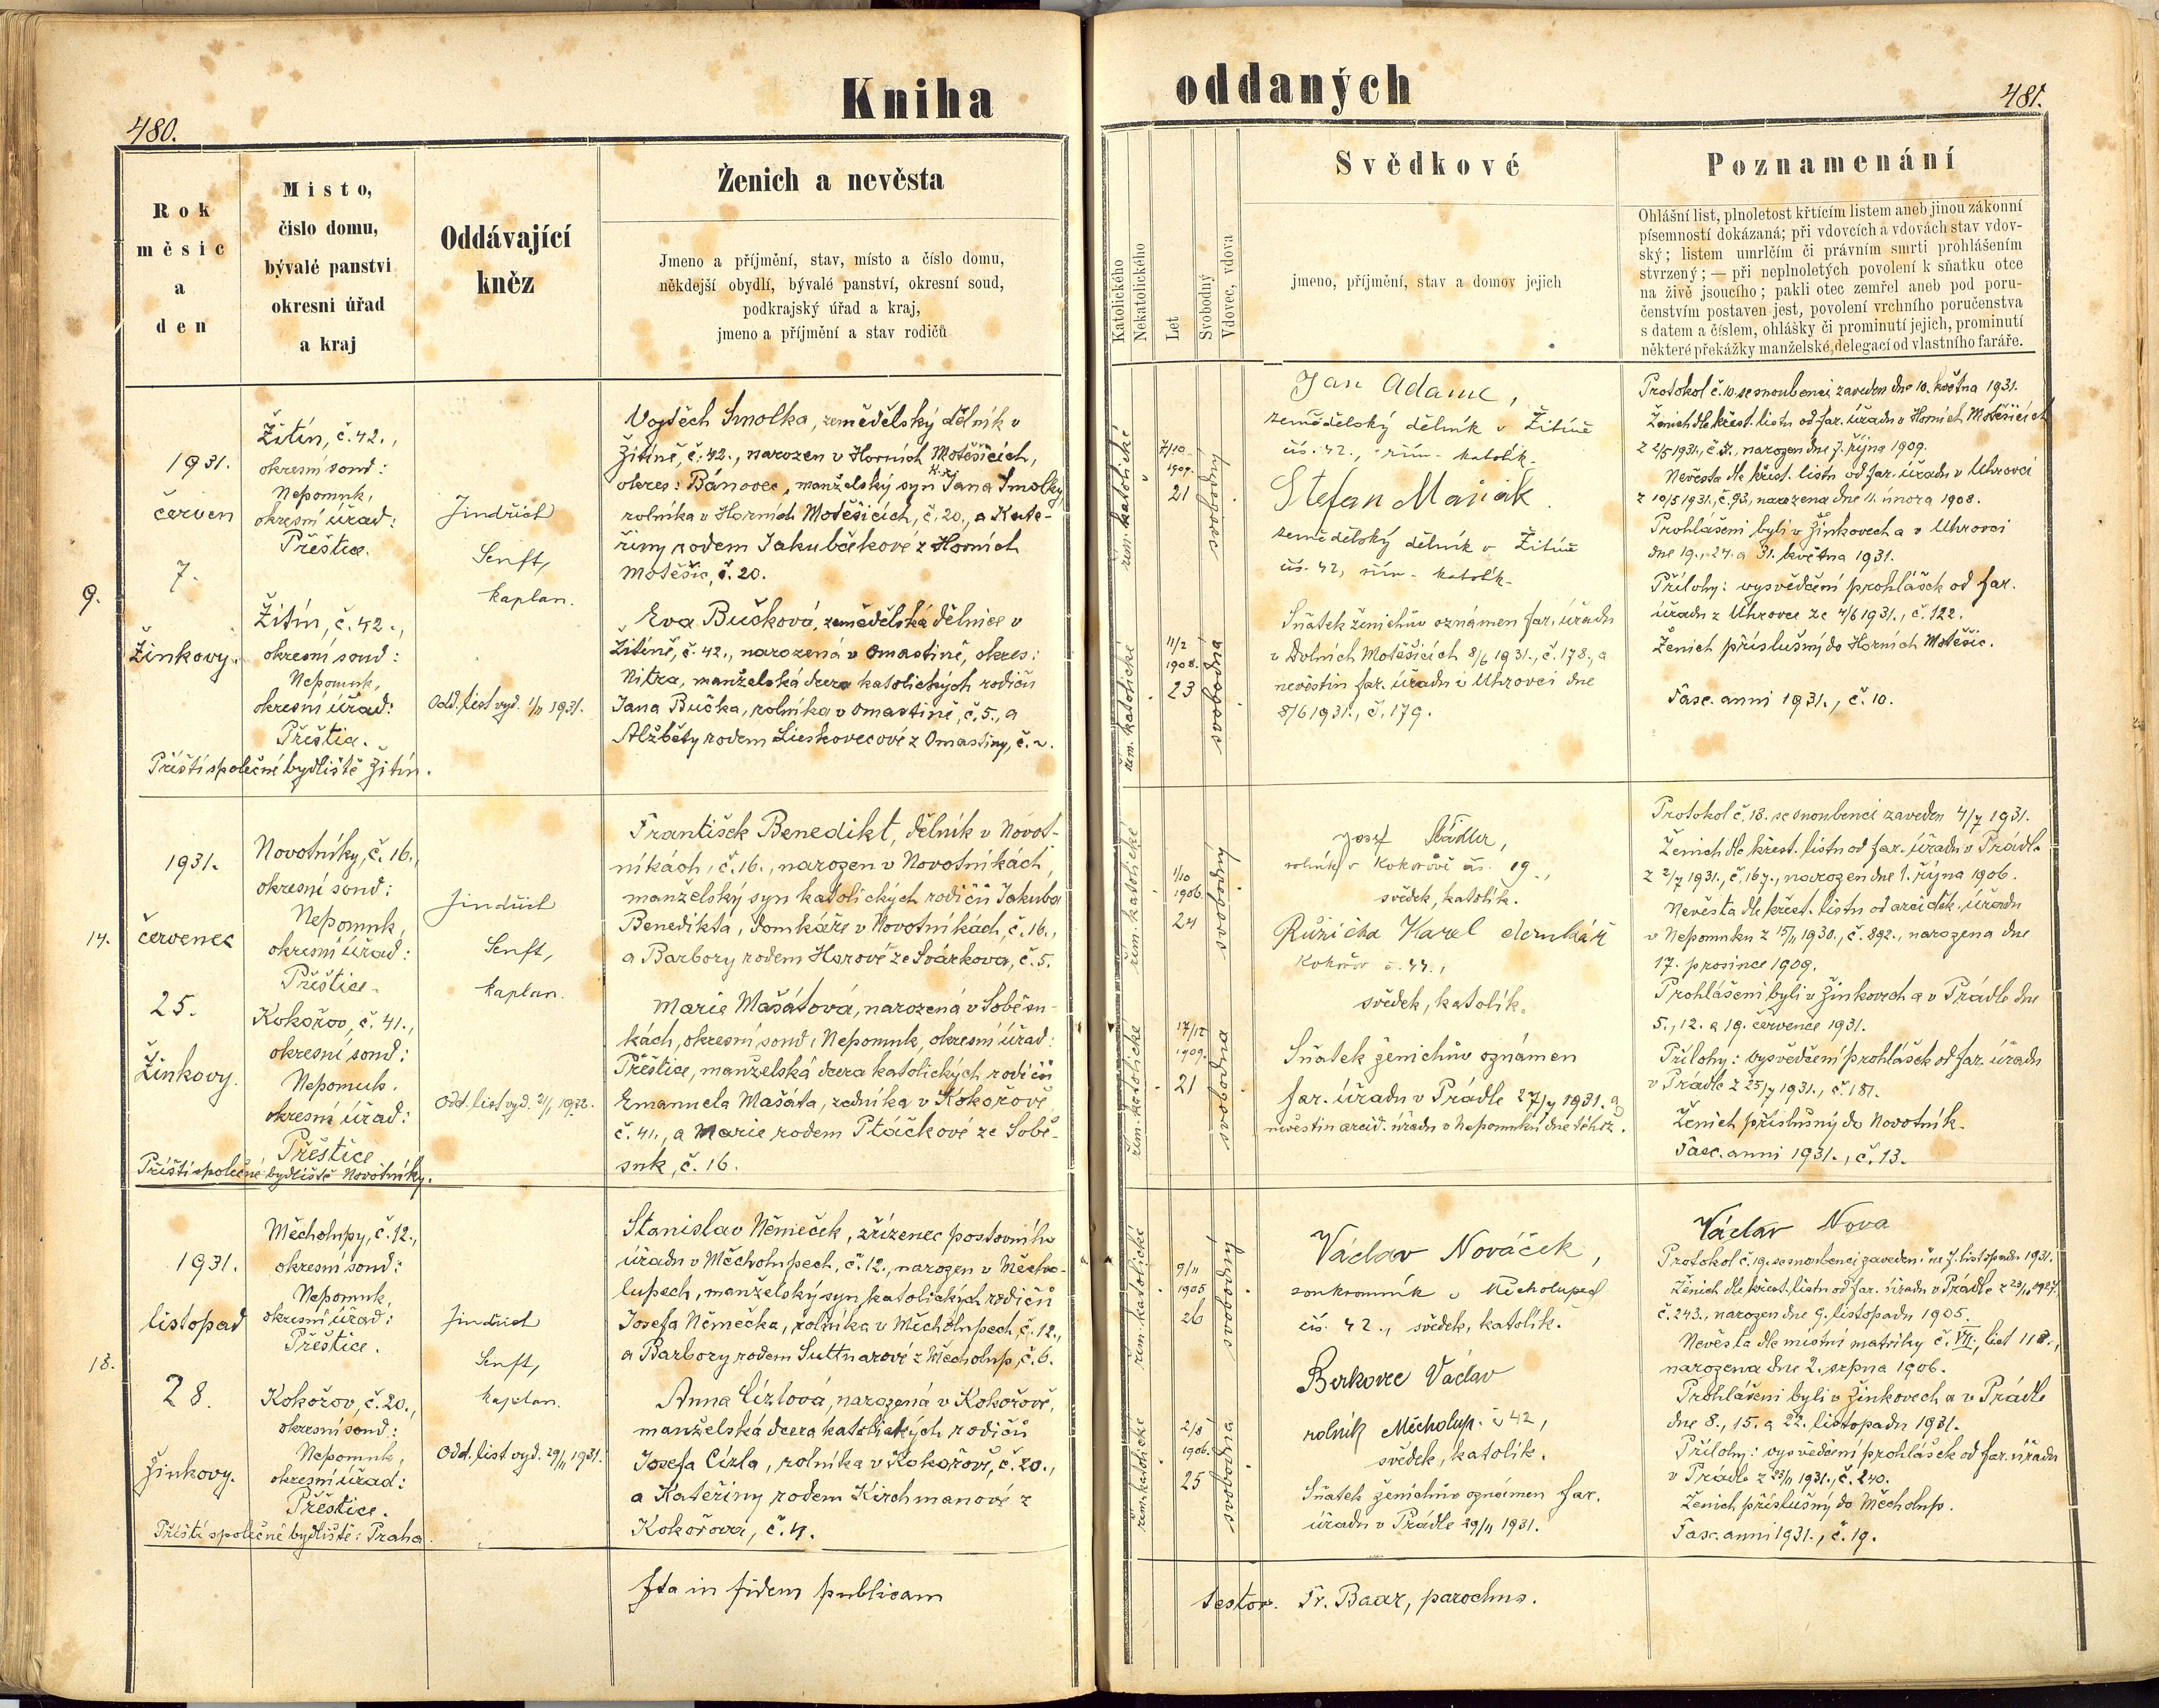 Kniha
480.
Rok
měsíc
a
den
Místo,
číslo domu,
bývalé panství
okresní úřad
a kraj
Oddávající
kněz
Ženich a nevěsta
Jmeno a příjmění, stav, místo a číslo domu,
někdejší obydlí, bývalé panství, okresní soud,
podkrajský úřad a kraj,
jmeno a příjmění a stav rodičů
9.
1931.
červen
7.
Žinkovy.
Žitín, č. 42.,
okresní soud:
Nepomuk,
okresní úřad:
Přeštice.
Žitín, č. 42.,
okresní soud:
Nepomuk,
okresní úřad:
Přeštice.
Příští společné bydliště Žitín.
Jindřich
Senft,
kaplan.
Odd. list vyd. 1931.
Vojtěch Smolka, zemědělský dělník v
Žitíně, č. 42., narozen v Horních Motěšicích,
okres: Bánovec, manželský syn Jana Smolky
rolníka v Horních Motěšicích, č. 20., a Kate-
řiny rodem Jakubčekové z Horních
Motěšic, č. 20.
Eva Bučková, zemědělská dělnice v
Žitíně, č. 42., narozená v Omastině, okres:
Nitra, manželská dcera katolických rodičů
Jana Bučka, rolníka v Omastině, č. 5., a
Alžběty rodem Lieskovecové z Omastiny, č. 2.
14.
1931.
červenec
25.
Žinkovy.
Novotníky, č. 16.,
okresní soud:
Nepomuk,
okresní úřad:
Přeštice.
Kokořov, č. 41.,
okresní soud:
Nepomuk.
okresní úřad:
Přeštice
Příští společné bydliště Novotníky.
Jindřich
Senft,
kaplan.
Odd. list vyd. 2/1 1932.
František Benedikt, dělník v Novot-
níkách, č. 16., narozen v Novotníkách,
manželský syn katolických rodičů Jakuba
Benedikta, domkáře v Novotníkách, č. 16.,
a Barbory rodem Harové ze Svárkova, č. 5.
Marie Mašátová, narozená v Soběsu-
kách, okresní soud: Nepomuk, okresní úřad:
Přeštice, manželská dcera katolických rodičů
Emanuela Mašáta, zedníka v Kokořově,
č. 41., a Marie, rodem Ptáčkové ze Sobě-
suk, č. 16.
18.
1931.
listopad
28.
Žinkovy.
Měcholupy, č. 12.,
okresní soud:
Nepomuk,
okresní úřad:
Přeštice.
Kokořov, č. 20.,
okresní soud:
Nepomuk,
okresní úřad:
Přeštice.
Příští společné bydliště: Praha.
Jindřich
Senft,
kaplan.
Odd. list vyd. 29/11 1931.
Stanislav Němeček, zřízenec poštovního
úřadu v Měcholupech, č. 12., narozen v Měcho-
lupech, manželský syn katolických rodičů
Josefa Němečka, rolníka v Měcholupech, č. 12.,
a Barbory rodem Suttnarové z Měcholup, č. 6.
Anna Cízlová, narozená v Kokořově,
manželská dcera katolických rodičů
Josefa Cízla, rolníka v Kokořově, č. 20.,
a Kateřiny rodem Kirchmanové z
Kokořova, č. 4.
Ita in fidem publicam
oddaných
481.
Katolického
Nekatolického
Let
Svobodný
Vdovec, vdova
Svědkové
jmeno, příjmění, stav a domov jejich
Poznamenání
Ohlášní list, plnoletost křtícím listem aneb jinou zákonní
písemností dokázaná; při vdovcích a vdovách stav vdov-
ský; listem umrlčím či právním smrti prohlášením
stvrzený; — při neplnoletých povolení k sňatku otce
na živě jsoucího; pakli otec zemřel aneb pod poru-
čenstvím postaven jest, povolení vrchního poručenstva
s datem a číslem, ohlášky či prominutí jejich, prominutí
některé překážky manželské, delegací od vlastního faráře.
řím. katolické
7/10
1909.
21
svobodný
řím. katolické
11/2
1908.
23
svobodná
Jan Adamec,
zemědělský dělník v Žitíně
čís. 42., řím. katolík.
Štefan
zemědělský dělník v Žitíně
čís. 42, řím. katolík.
Sňatek ženichův oznámen far. úřadu
v Dolních Motěšicích 8/6 1931., č. 178., a
nevěstin far. úřadu v Uhrovci dne
8/6 1931., č. 179.
Protokol č. 10. se snoubenci zaveden dne 10. května 1931.
Ženich dle křest. listu od far. úřadu v Horních Motěšicích
z 2/5 1931., č. 5., narozen dne 7. října 1909.
Nevěsta dle křest. listu od far. úřadu v Uhrovci
z 10/5 1931., č. 93., narozena dne 11. února 1908.
Prohlášeni byli v Žinkovech a v Uhrovci
dne 19., 24. a 31. května 1931.
Přílohy: vysvědčení prohlášek od far.
úřadu z Uhrovce ze 4/6 1931., č. 122.
Ženich příslušný do Horních Motěšic.
Fasc. anni 1931., č. 10.
řím. katolické
1/10
1906.
24
svobodný
řím. katolické
17/12
1909.
21
svobodná
Josef Šádler,
rolník v Kokořově čís. 19.,
svědek, katolík.
Růžička Karel domkář
Kokořov č. 44.,
svědek, katolík.
Sňatek ženichův oznámen
far. úřadu v Prádle 27/7 1931. a
nevěstin arcid. úřadu v Nepomuku dne téhož.
Protokol č. 13. se snoubenci zaveden 4/7 1931.
Ženich dle křest. listu od far. úřadu v Prádle
z 2/7 1931., č. 167., narozen dne 1. října 1906.
Nevěsta dle křest. listu od arciděk. úřadu
v Nepomuku z 15/11 1930., č. 892., narozena dne
17. prosince 1909.
Prohlášeni byli v Žinkovech a v Prádle dne
5., 12. a 19. července 1931.
Přílohy: vysvědčení prohlášek od far. úřadu
v Prádle z 25/7 1931., č. 181.
Ženich příslušný do Novotník.
Fasc. anni 1931., č. 13.
řím. katolické
9/11
1905
26
svobodný
řím. katolické
2/8
1906.
25
svobodná
Václav Nováček,
soukromník v Měcholupech
čís. 42., svědek, katolík.
Berkovec Václav
rolník Měcholup. č 42,
svědek, katolík.
Sňatek ženichův oznámen far.
úřadu v Prádle 29/11 1931.
Václav Nova
Protokol č. 19. se snoubenci zaveden dne 7. listopadu 1931.
Ženich dle křest. listu od far. úřadu v Prádle z 23/11 1927.
č. 243., narozen dne 9. listopadu 1905.
Nevěsta dle místní matriky č. VII., list 118.,
narozena dne 2. srpna 1906.
Prohlášeni byli v Žinkovech a v Prádle
dne 8., 15. a 22. listopadu 1931.
Přílohy: vysvědčení prohlášek od far. úřadu
v Prádle z 23/11 1931., č. 240.
Ženich příslušný do Měcholup.
Fasc. anni 1931., č. 19.
testor. Fr. Baar, parochus.